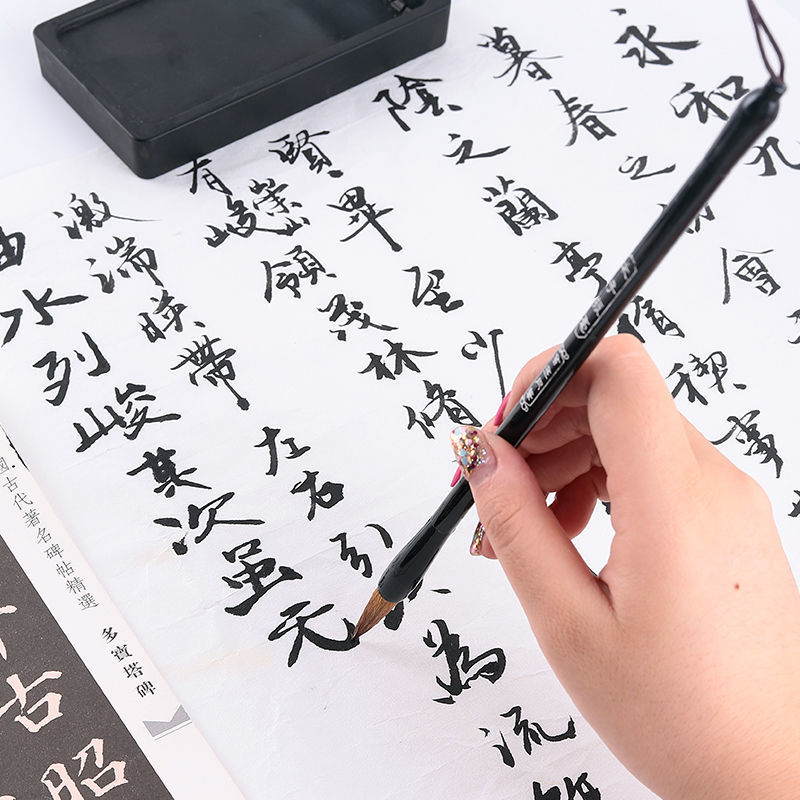 永和九
暮春之初會
陰之蘭亭脩禊事
賢畢至少
有崇峻領茂林脩
激湍暎帶左右引以為流
曲水列峻其次虽无
國·古代著名碑帖精選
多寶塔碑
古
昭